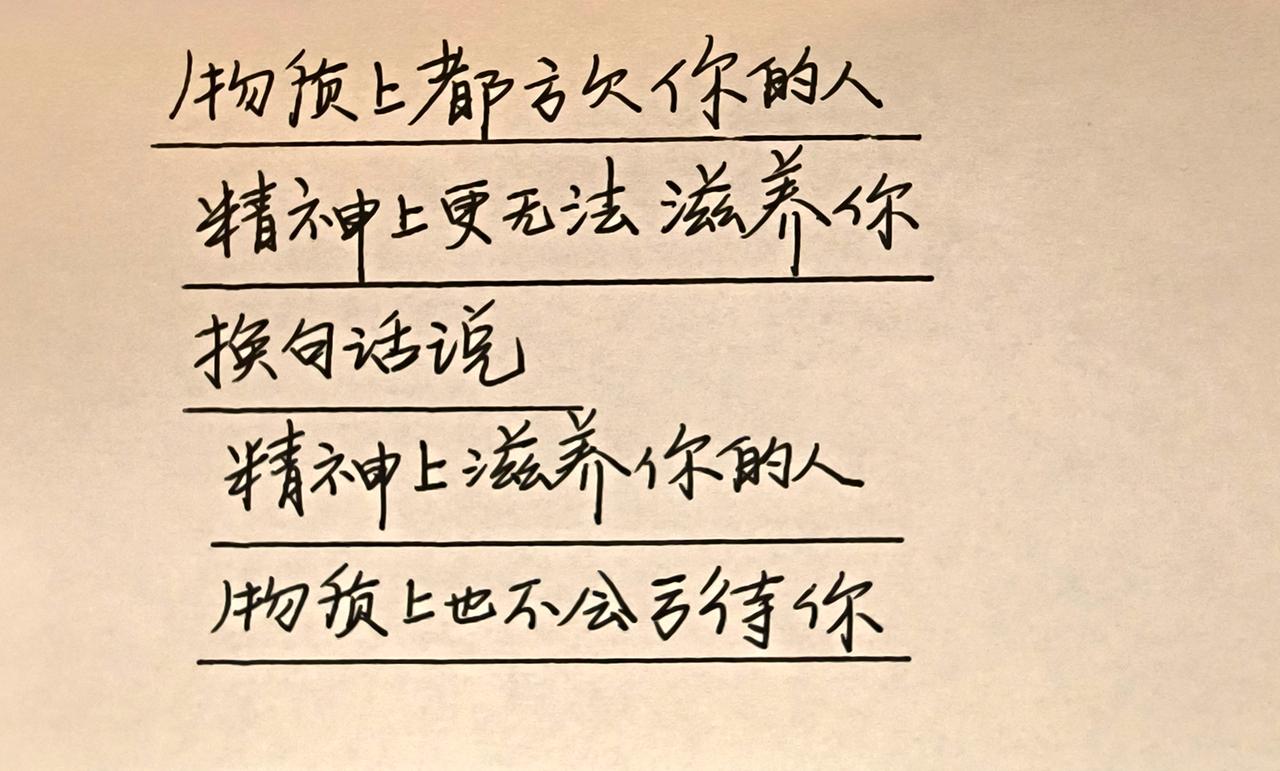 物质上都亏欠你的人
精神上更无法滋养你
换句话说
精神上滋养你的人
物质上也不会亏待你